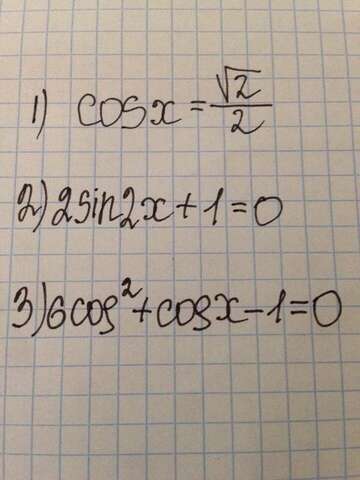 1) cosx = √2/2
2) 2sin2x + 1 = 0
3) 6cos² + cosx - 1 = 0